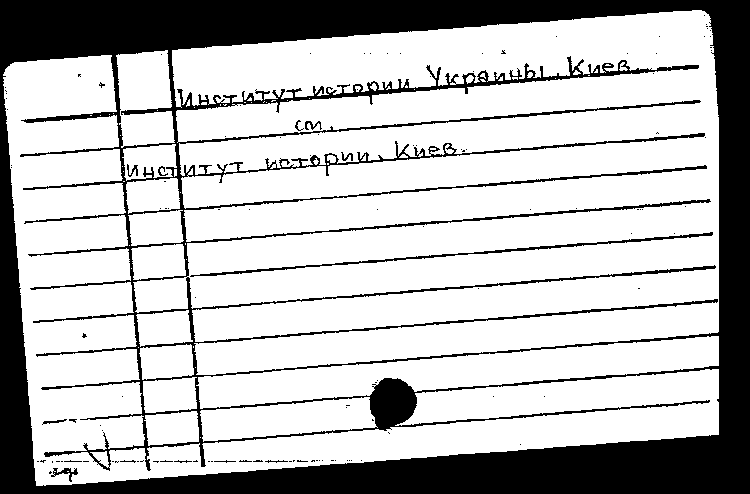 Институт истории Украины. Киев.
см.
Институт истории. Киев.